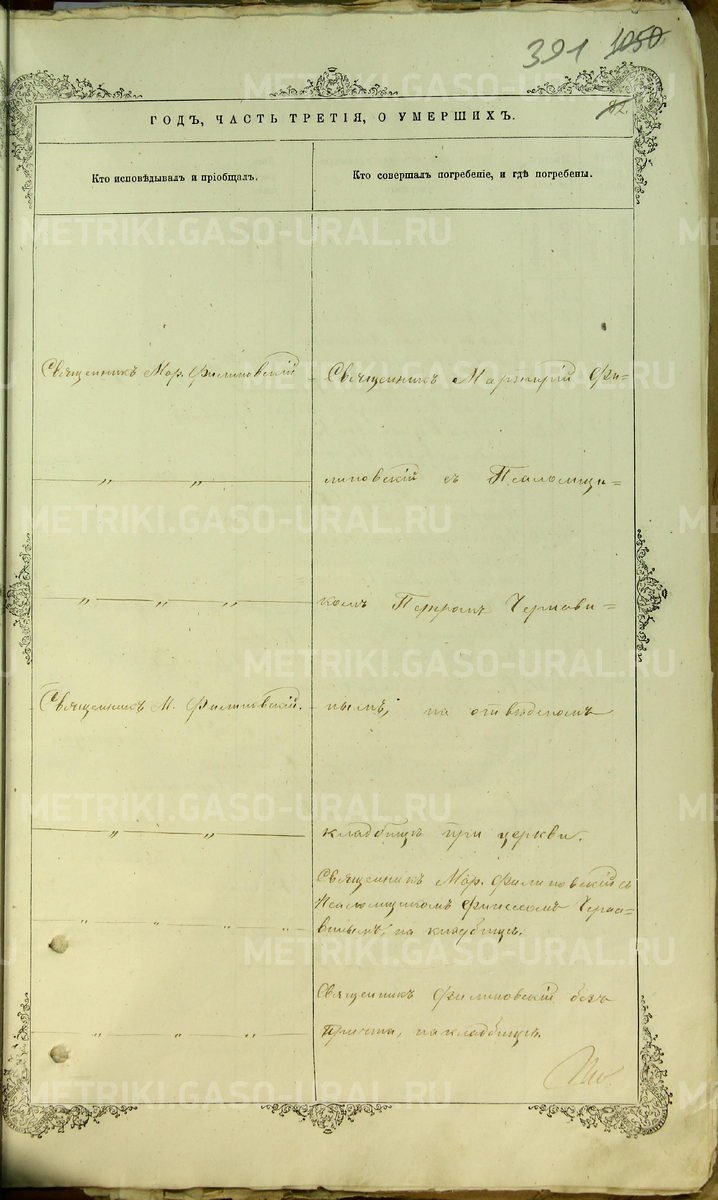 391 1050
82
ГОДЪ, ЧАСТЬ ТРЕТІЯ, О УМЕРШИХЪ.
Кто исповѣдывалъ и пріобщалъ.
Кто совершалъ погребеніе, и гдѣ погребены.
Священникъ Мар. Филиповскій
Священникъ Мардарій Фи=
— „ — „ —
липовскій съ Псаломщи=
— „ — „ — „ —
комъ Петромъ Чернави=
Священникъ М. Филиповскій.
нымъ, на отведеномъ
— „ — „ —
кладбищѣ при церкви.
Священникъ Мар. Филиповскій съ
Псаломщикомъ Чернав=
инымъ, на кладбищѣ.
„ — „ — „ „
Священникъ Филиповскій безъ
причта, на кладбищѣ.
„ — „ — „ —
METRIKI.GASO-URAL.RU